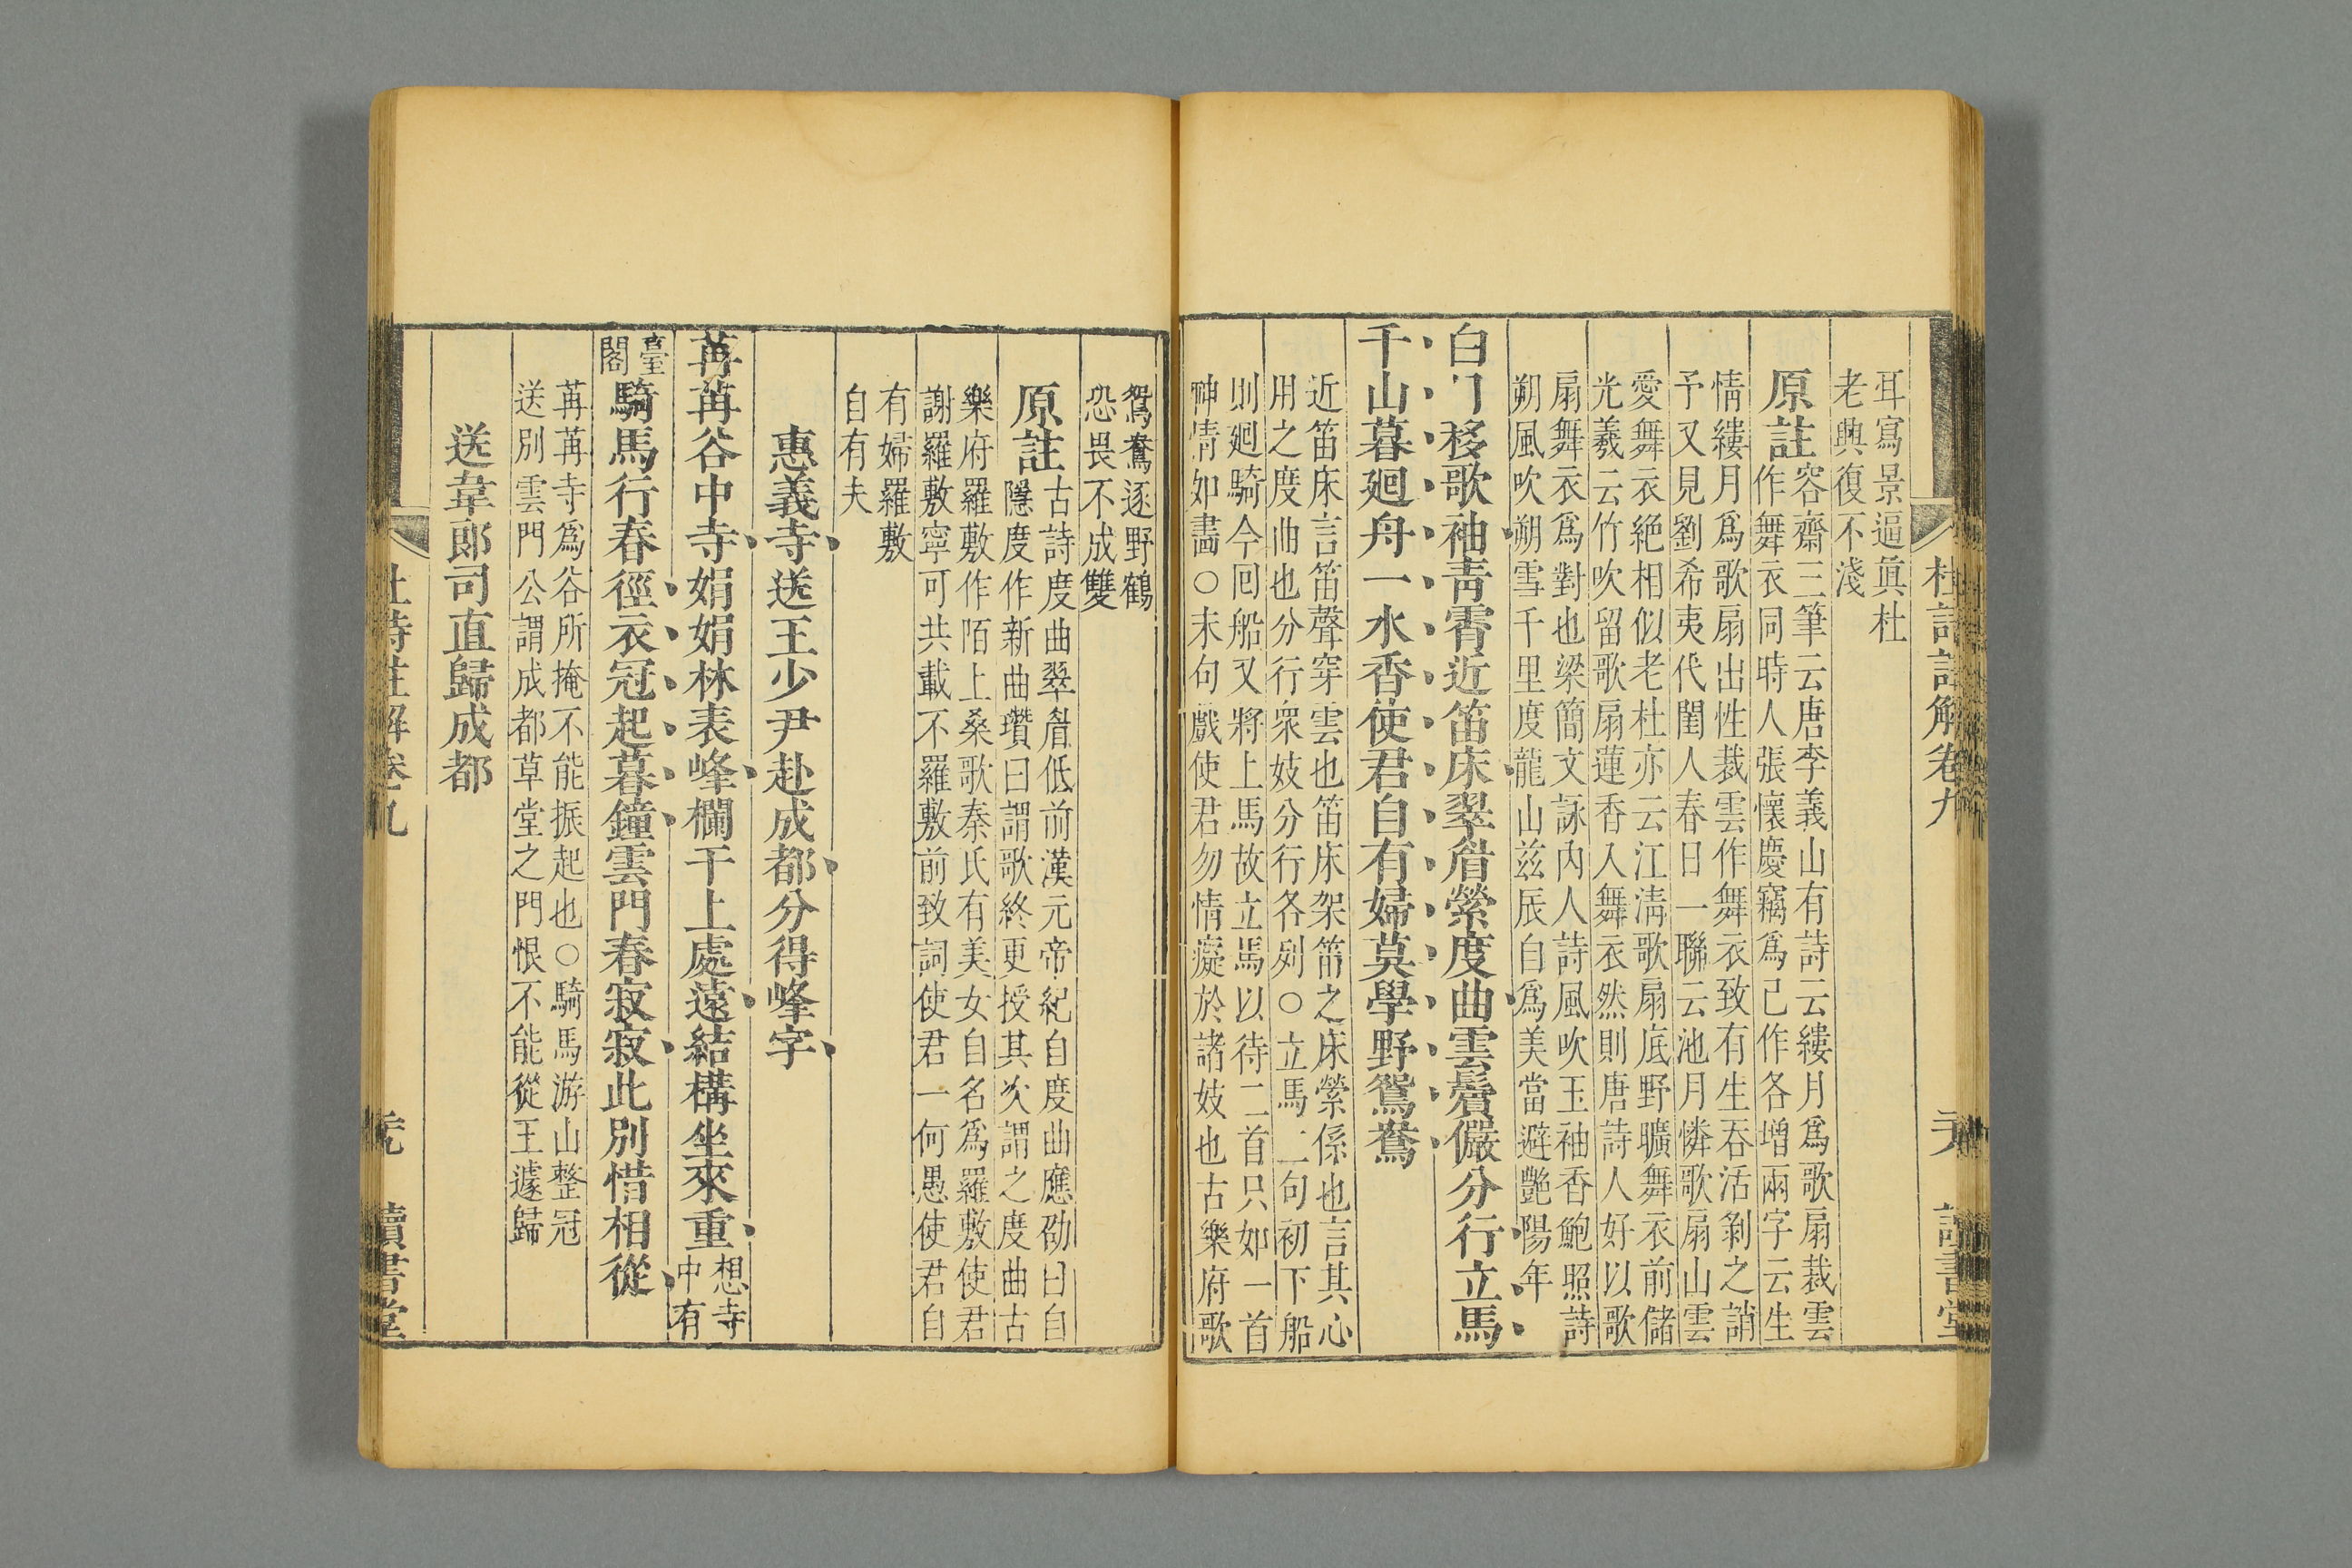 杜詩註解卷九
耳寫景逼眞杜
老興復不淺
原註
容齋三筆云唐李義山有詩云縷月爲歌扇裁雲
作舞衣同時人張懷慶竊爲己作各增兩字云生
情縷月爲歌扇出性裁雲作舞衣致有生吞活剝之誚
予又見劉希夷代閨人春日一聯云池月憐歌扇山雲
愛舞衣絕相似老杜亦云江淸歌扇底野曠舞衣前儲
光羲云竹吹留歌扇蓮香入舞衣然則唐詩人好以歌
扇舞衣爲對也梁簡文詠內人詩風吹玉袖香鮑照詩
朔風吹朔雪千里度龍山茲辰自爲美當避艷陽年
白日移歌袖靑霄近笛床翠眉縈度曲雲鬢儼分行立馬
千山暮廻舟一水香使君自有婦莫學野鴛鴦
近笛床言笛聲穿雲也笛床架笛之床縈係也言其心
用之度曲也分行衆妓分行各列○立馬二句初下船
則廻騎今回船又將上馬故立馬以待二首只如一首
神情如畵○末句戲使君勿情癡於諸妓也古樂府歌
鴛鴦逐野鶴
恐畏不成雙
原註
古詩度曲翠眉低前漢元帝紀自度曲應劭曰自
隱度作新曲瓚曰謂歌終更授其次謂之度曲古
樂府羅敷作陌上桑歌秦氏有美女自名爲羅敷使君
謝羅敷寧可共載不羅敷前致詞使君一何愚使君自
有婦羅敷
自有夫
惠義寺送王少尹赴成都分得峰字
苒苒谷中寺娟娟林表峰欄干上處遠結構坐來重
想寺
中有
臺
閣
騎馬行春徑衣冠起暮鐘雲門春寂寂此別惜相從
苒苒寺爲谷所掩不能振起也○騎馬游山整冠
送別雲門公謂成都草堂之門恨不能從王遽歸
送韋郎司直歸成都
杜詩註解卷九
讀書堂